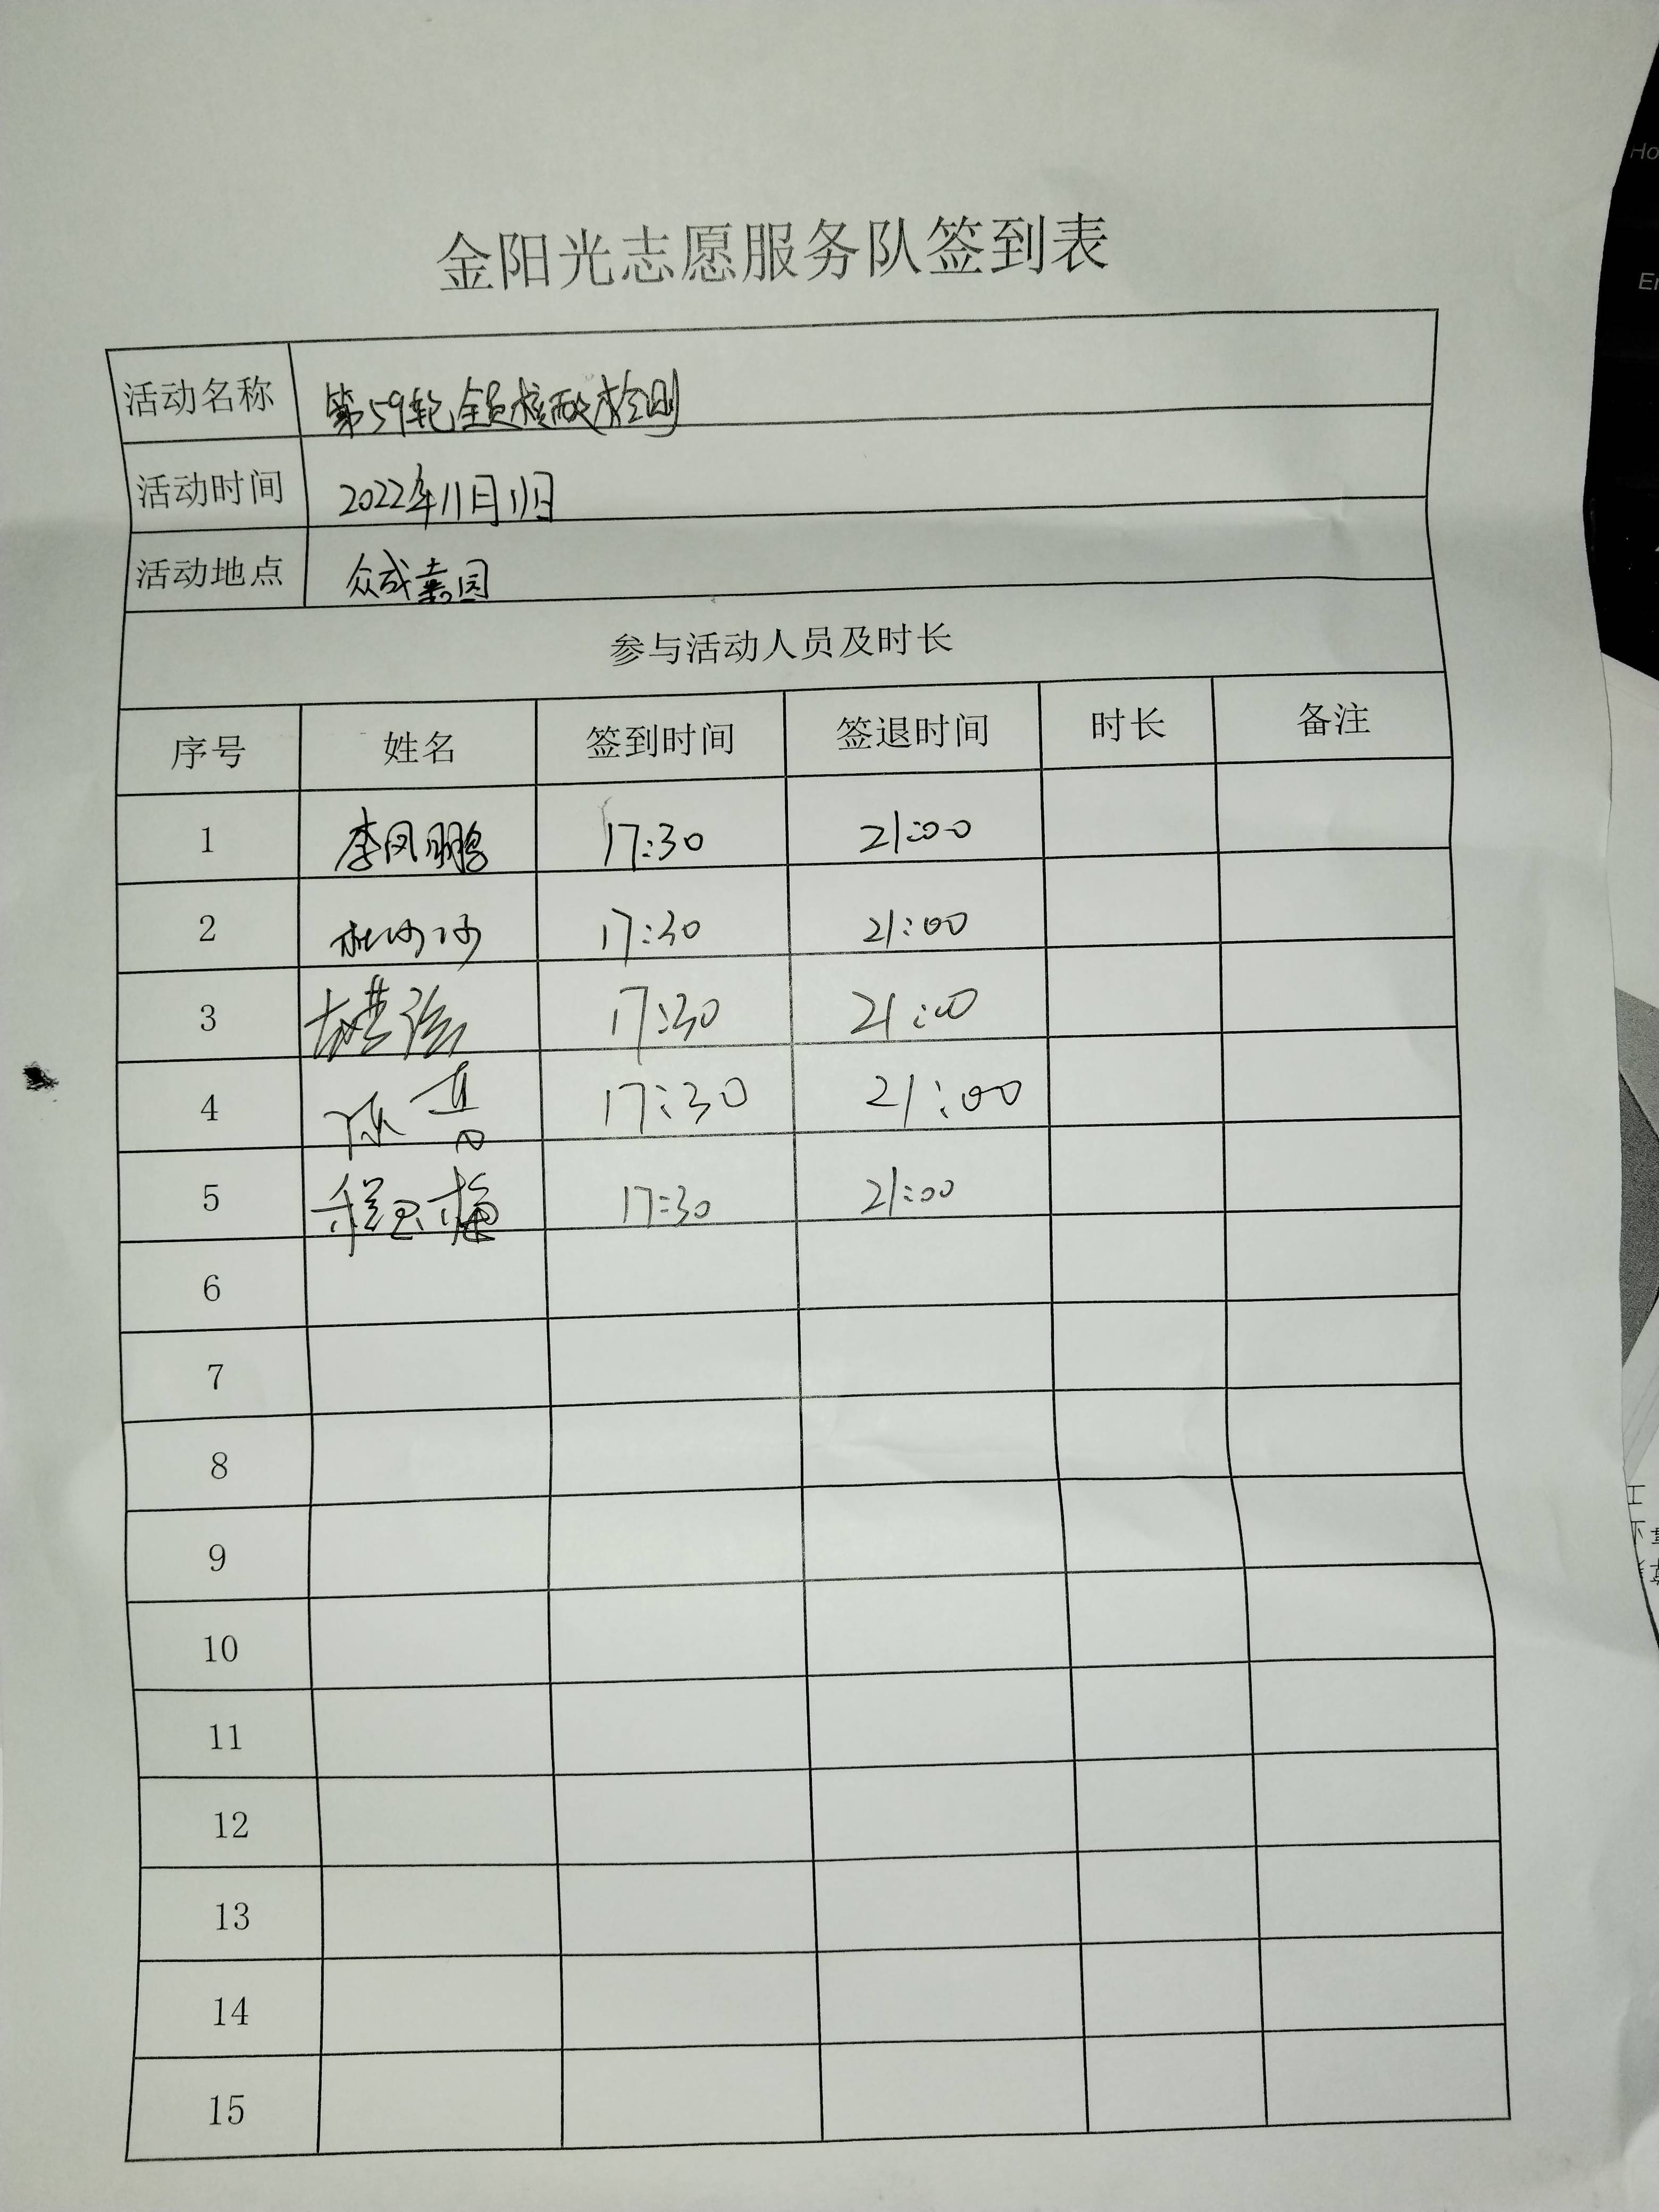 金阳光志愿服务队签到表
活动名称 第59轮全员核酸检测
活动时间 2022年11月11日
活动地点 众成嘉园
参与活动人员及时长
序号 姓名 签到时间 签退时间 时长 备注
1 李凤鹏 17:30 21:00
2 杜沙沙 17:30 21:00
3 17:30 21:00
4 陈 17:30 21:00
5 程玉梅 17:30 21:00
6
7
8
9
10
11
12
13
14
15